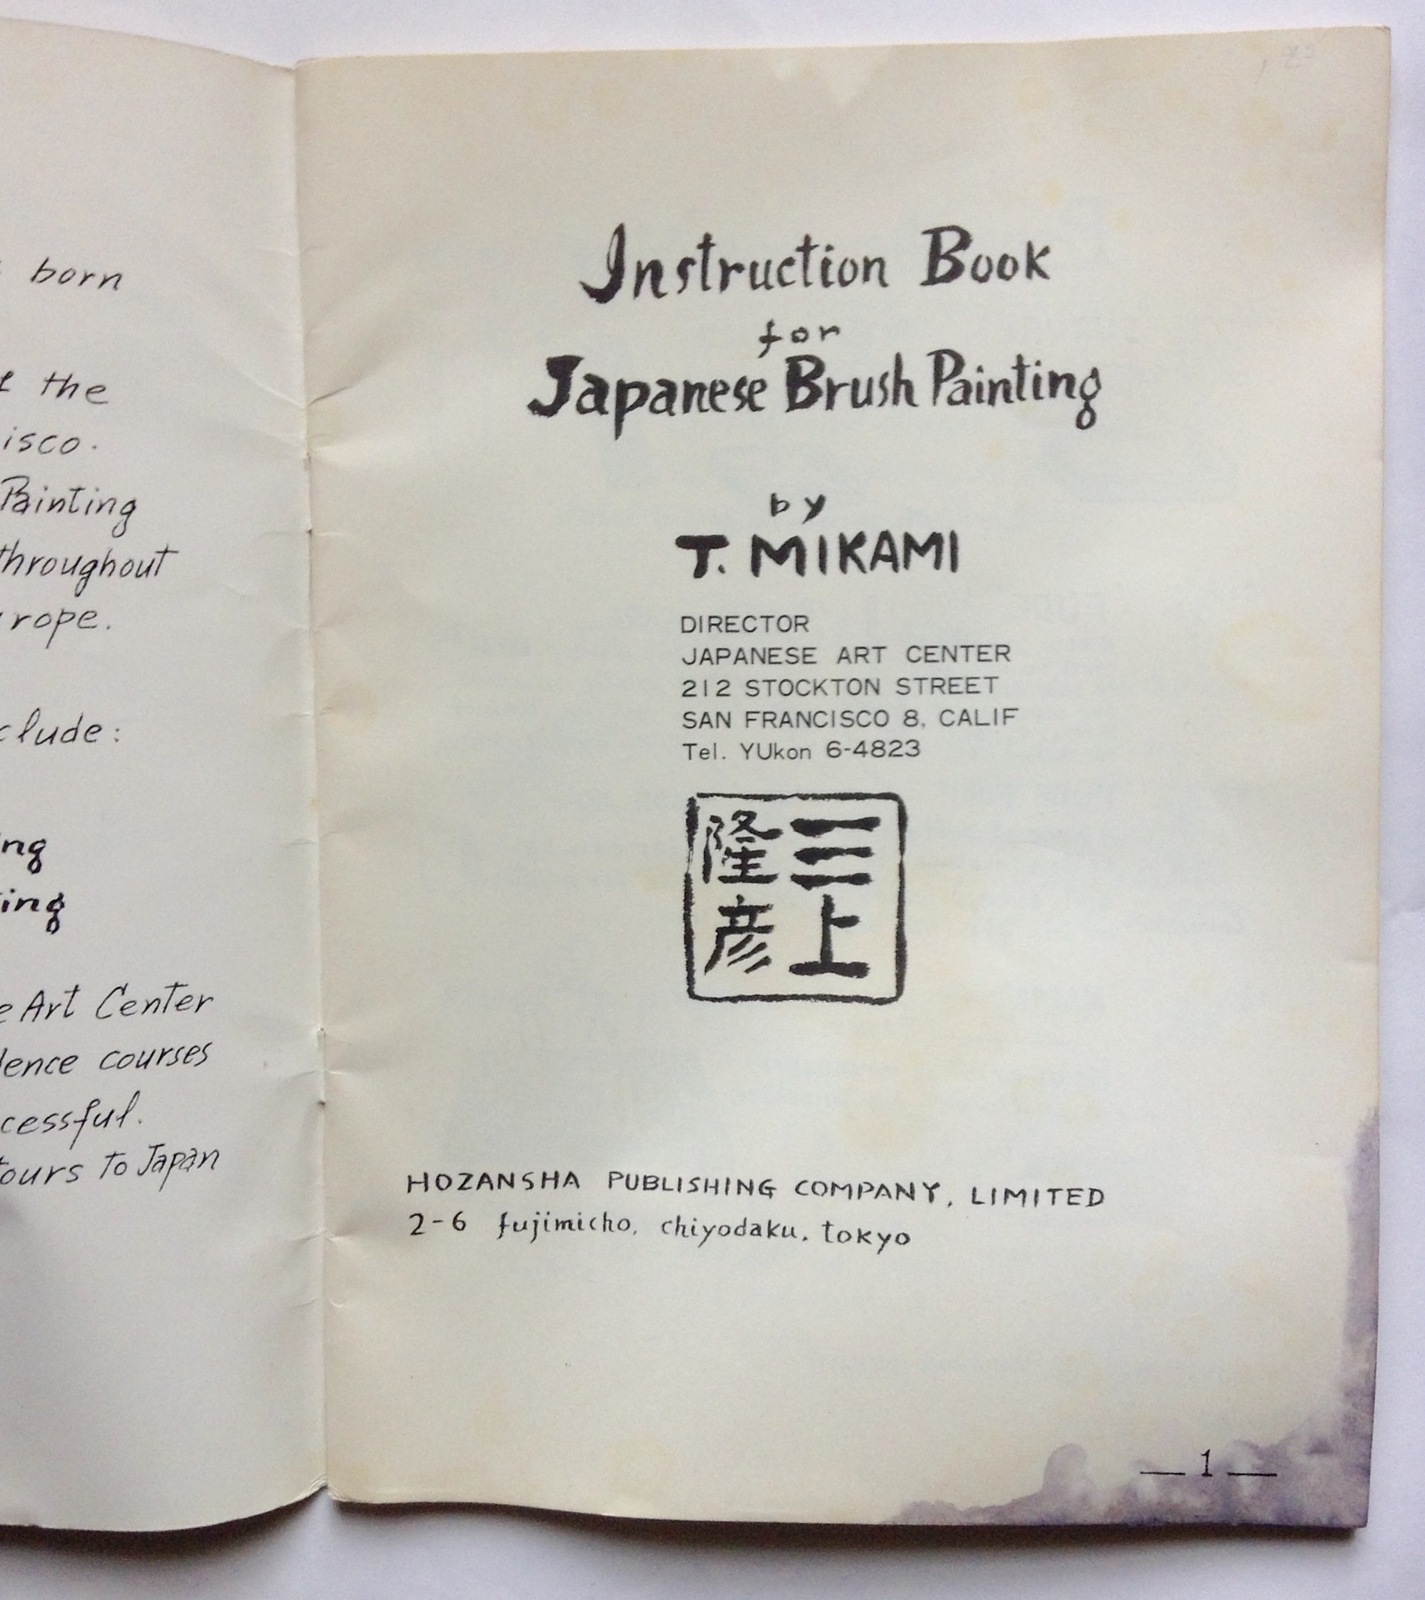 born
the
isco.
Painting
throughout
rope.
clude:
ng
ing
Art Center
courses
cessful.
tours to Japan
Instruction Book
for
Japanese Brush Painting
by
T. MIKAMI
DIRECTOR
JAPANESE ART CENTER
212 STOCKTON STREET
SAN FRANCISCO 8, CALIF
Tel. YUkon 6-4823
三上
隆彦
HOZANSHA PUBLISHING COMPANY, LIMITED
2-6 fujimicho, chiyodaku, tokyo
— 1 —